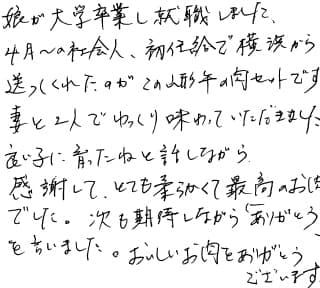 娘が大学卒業し就職しました、
4月〜の社会人、初任給で横浜から
送ってくれたのがこの山形牛の肉セットです
妻と2人でゆっくり味わっていただきました
良い子に育ったねと話しながら
感謝して、とても柔らかくて最高のお肉
でした。次も期待しながら「ありがとう
を言いました。おいしいお肉をありがとう
ございます